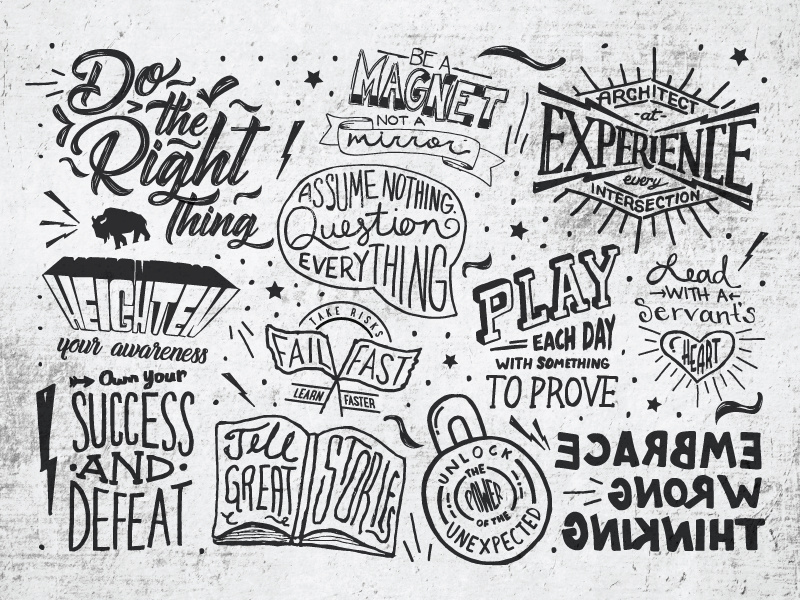 Do
the
Right
Thing
BE A
MAGNET
NOT A
mirror
ARCHITECT
-at-
EXPERIENCE
every
INTERSECTION
ASSUME NOTHING.
Question
EVERYTHING
HEIGHTEN
your awareness
TAKE RISKS
FAIL FAST
LEARN FASTER
PLAY
EACH DAY
WITH SOMETHING
TO PROVE
Lead
WITH A
Servant's
HEART
Own your
SUCCESS
AND
DEFEAT
Tell
GREAT
STORIES
UNLOCK
THE
POWER
OF THE
UNEXPECTED
EMBRACE
WRONG
THINKING